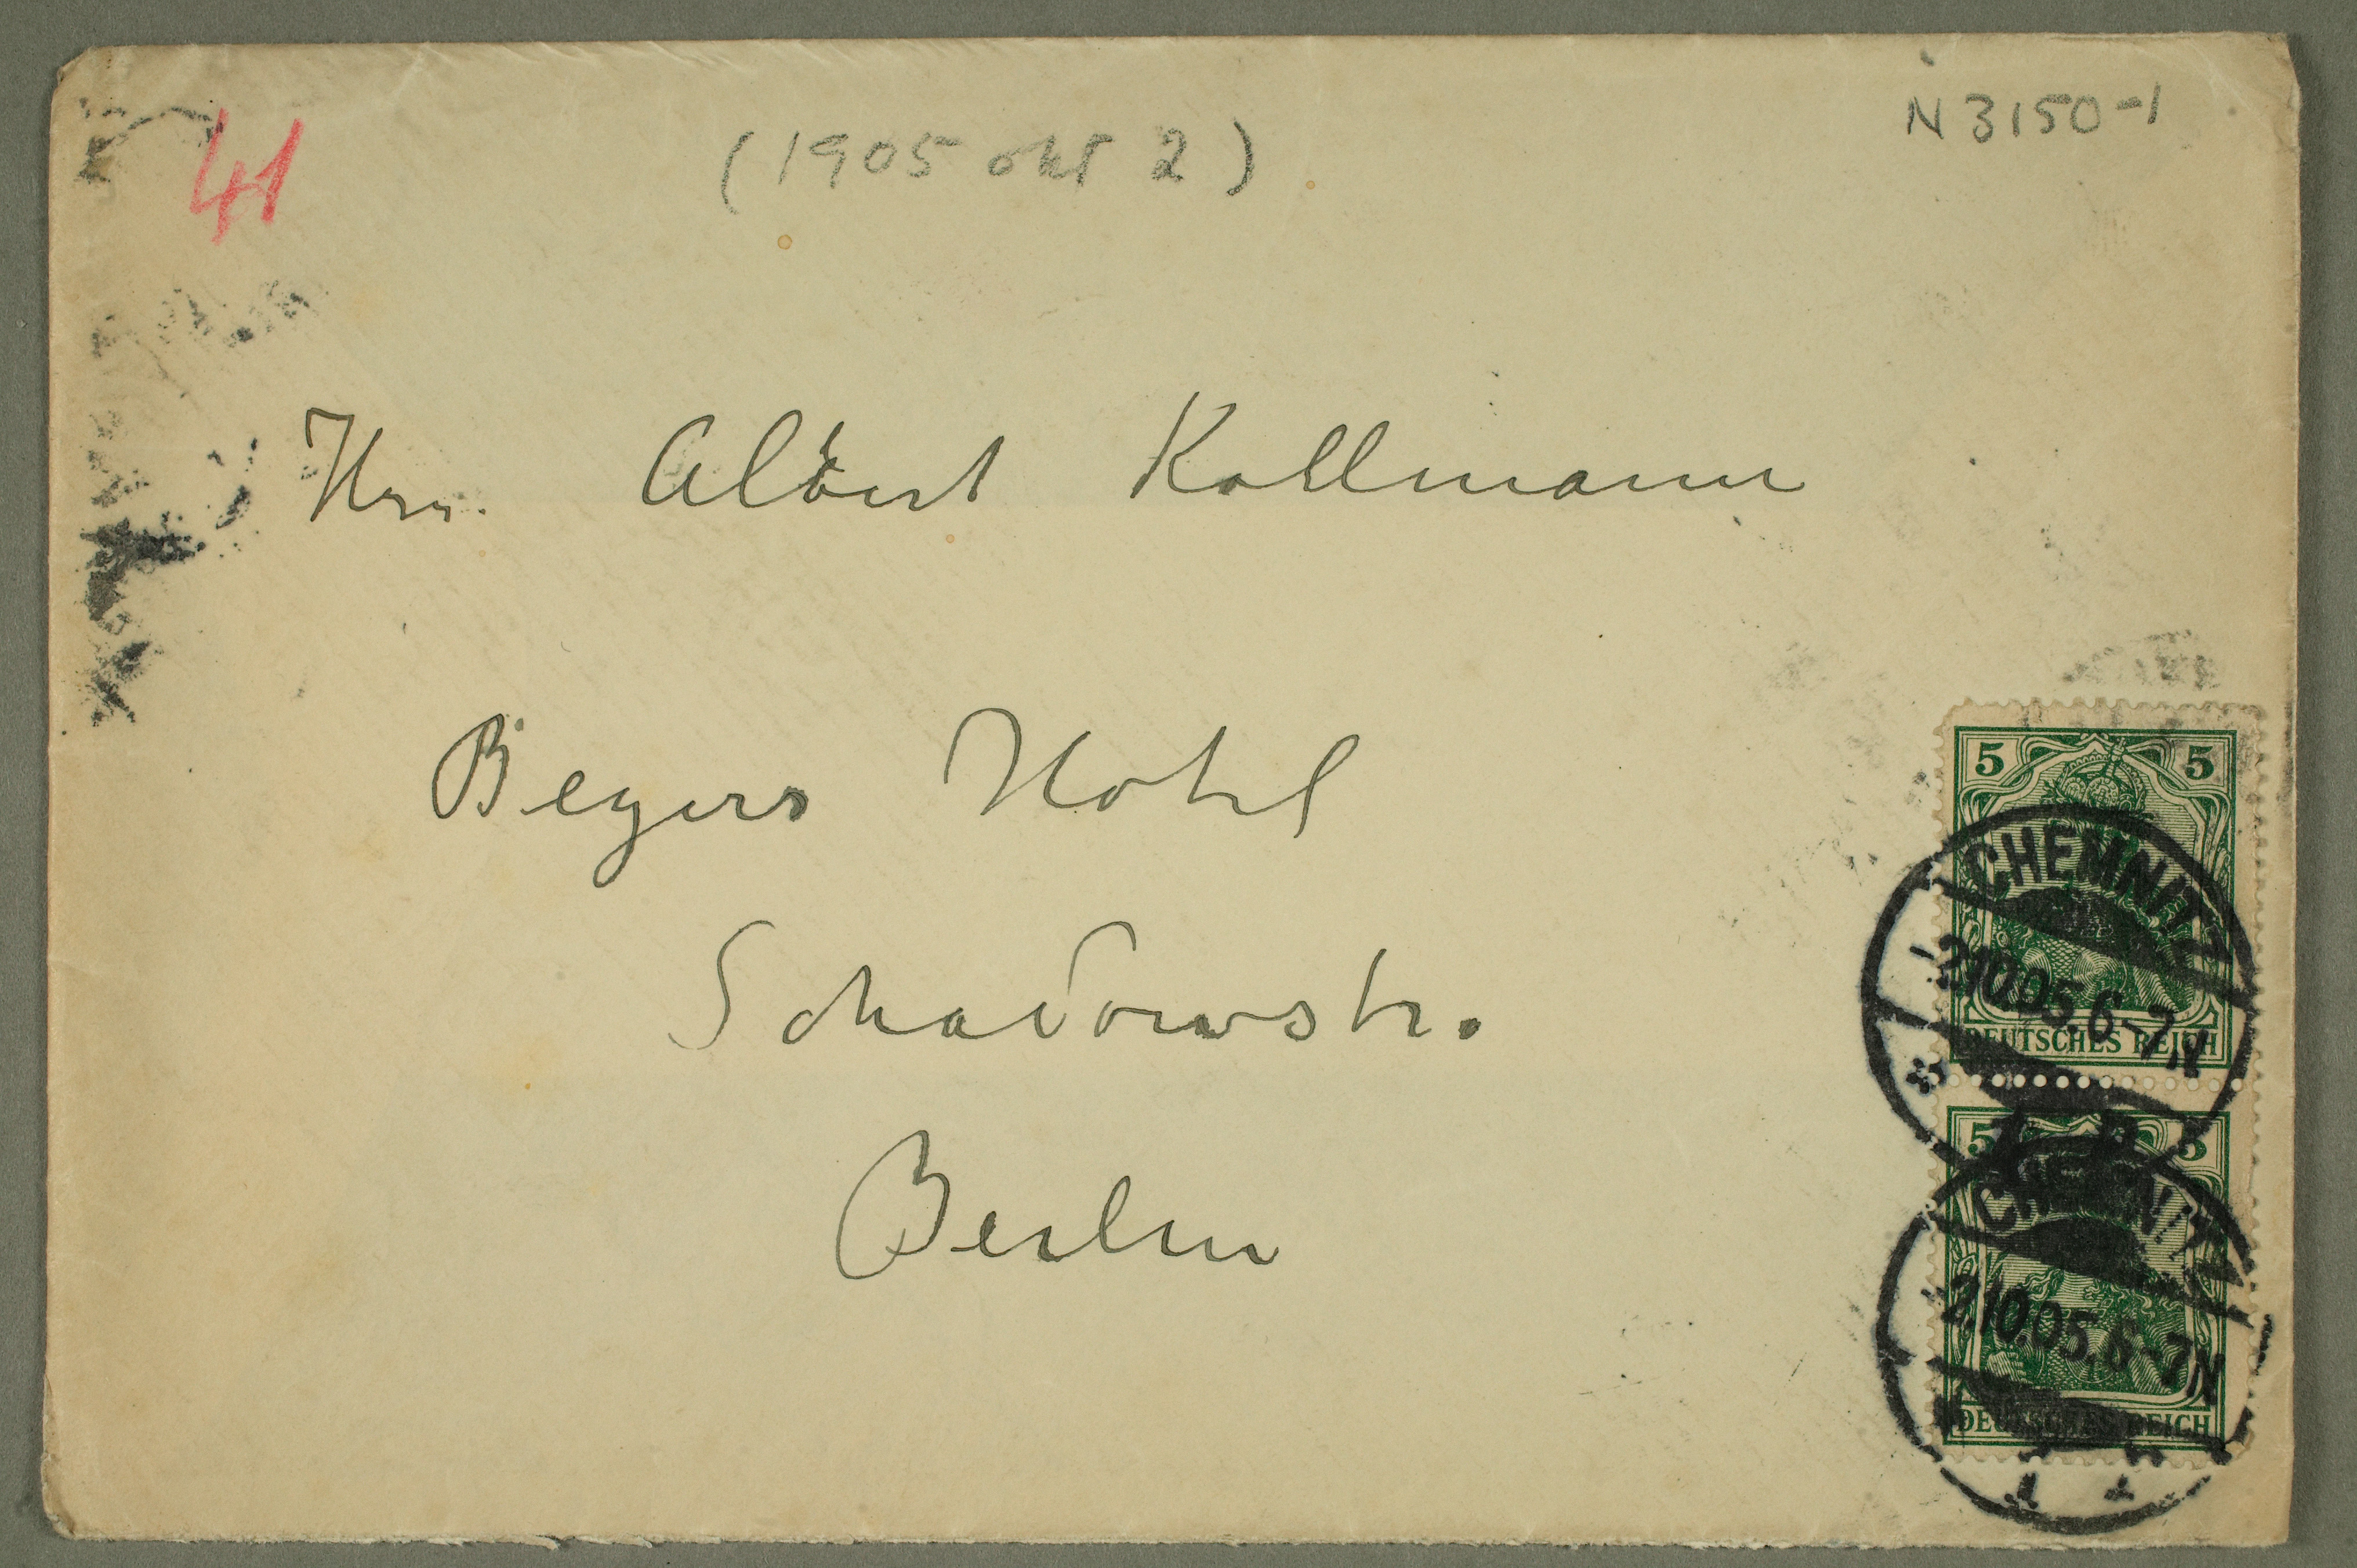 41
(1905 okt 2)
N 3150-1
Hrn. Albert Kollmann
Beyers Hotel
Schadowstr.
Berlin
5 5
DEUTSCHES REICH
CHEMNITZ
-2.10.05.6-7N
5 5
DEUTSCHES REICH
CHEMNITZ
-2.10.05.6-7N